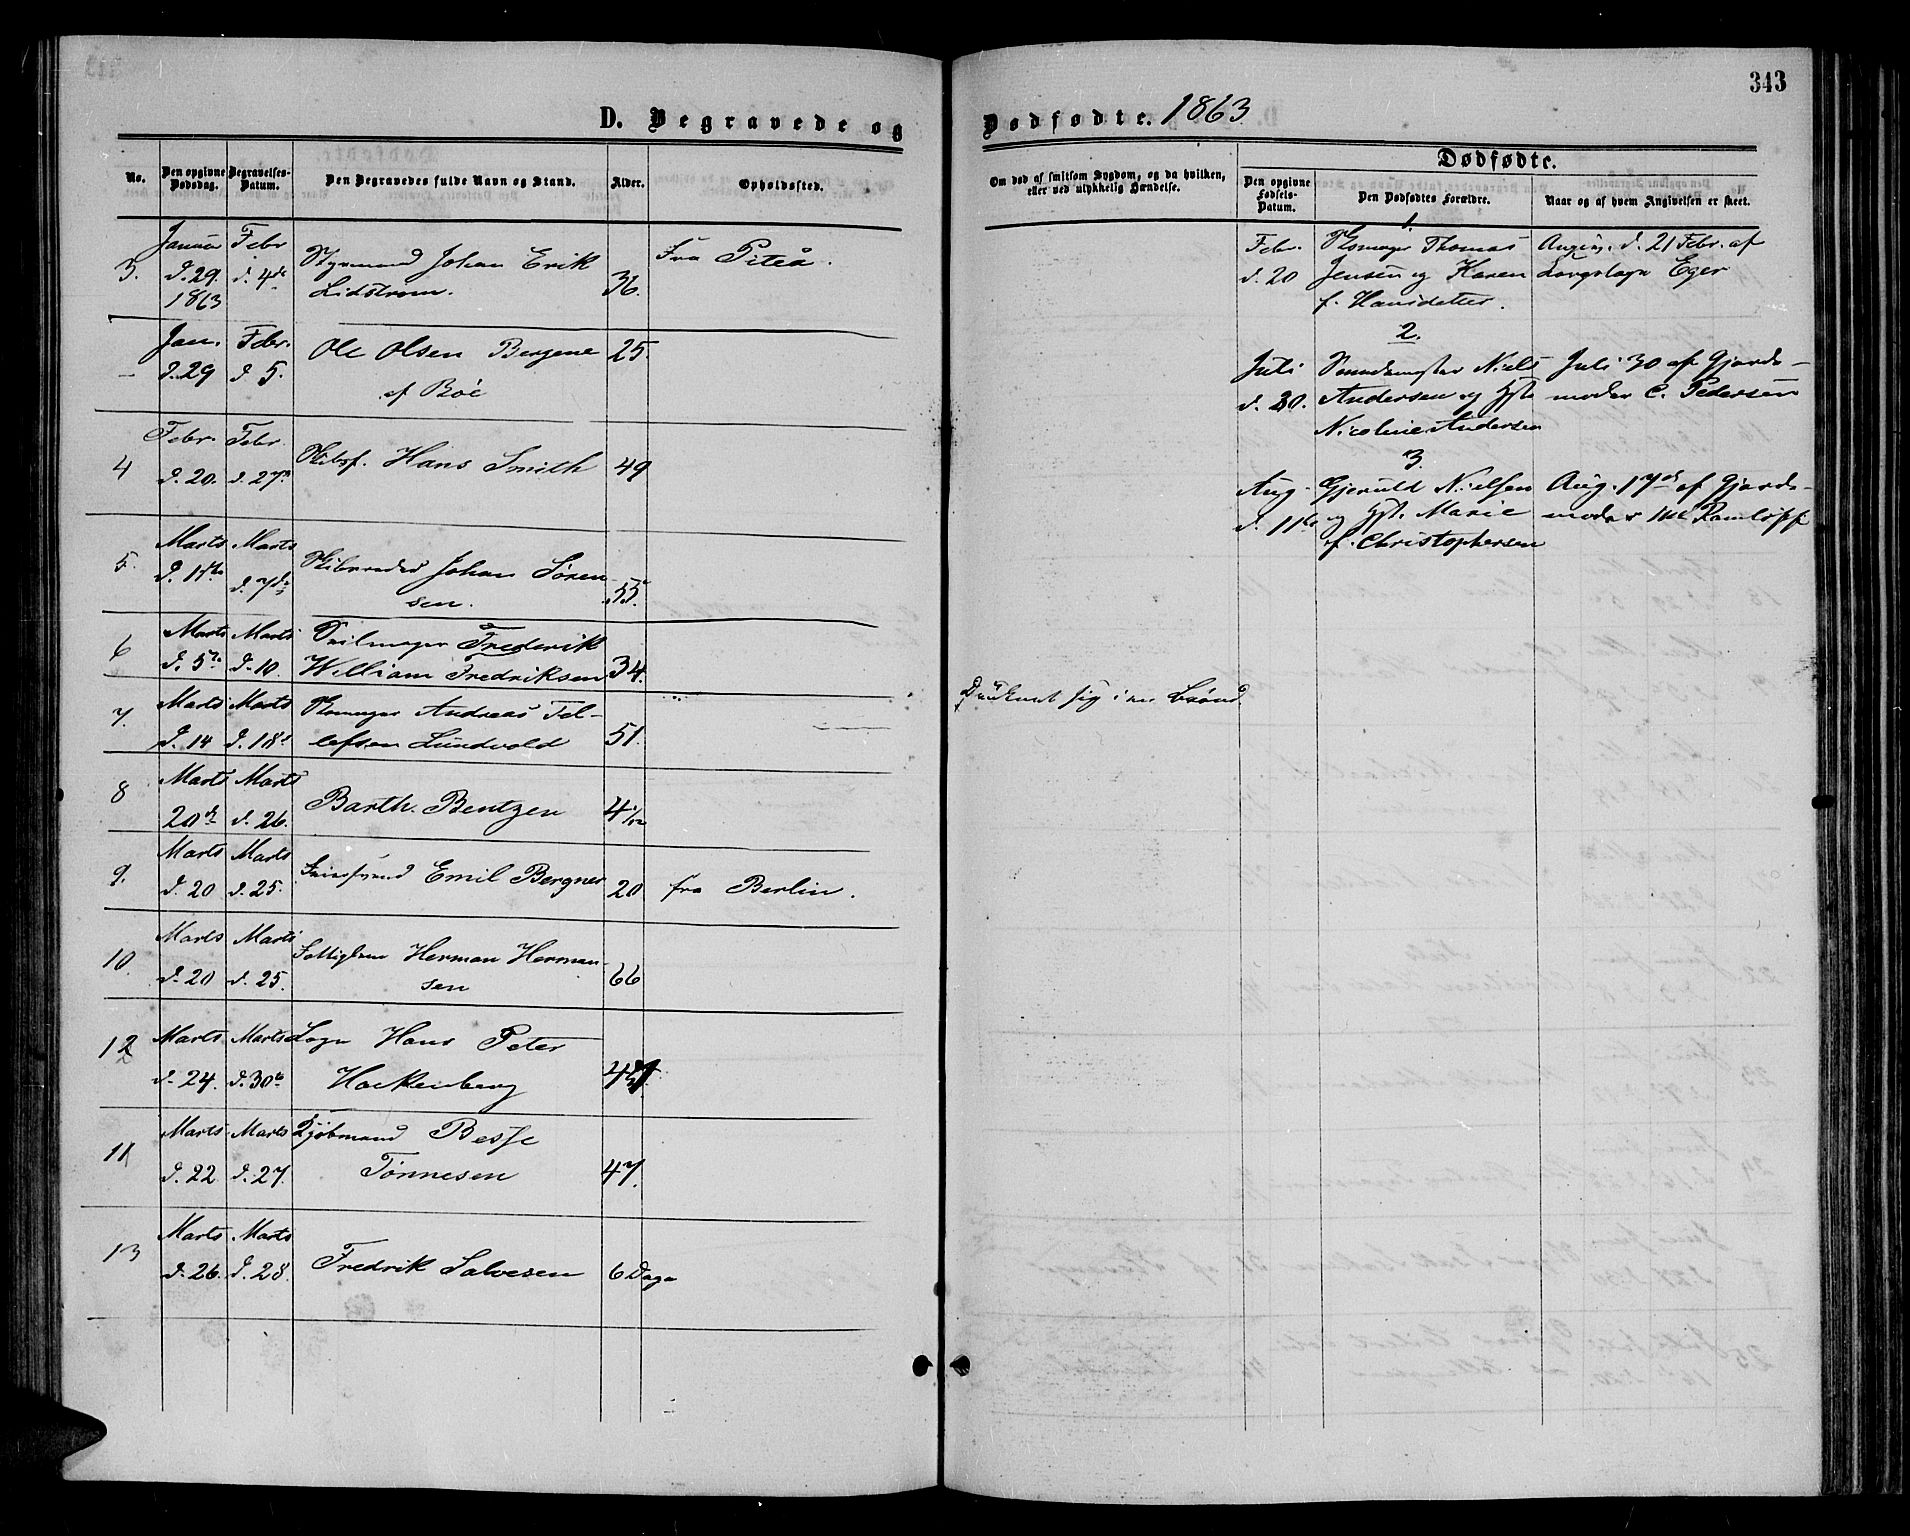 343
D. Begravede og
Dødfødte. 1863
No.
Den opgivne Dødsdag.
Begravelses-Datum.
Den Begravedes fulde Navn og Stand.
Alder.
Opholdssted.
Om død af smitsom Sygdom, og da hvilken,
eller ved ulykkelig Hændelse.
Dødfødte.
Den opgivne Fødsels-Datum.
Den Dødfødtes Forældre.
Naar og af hvem Angivelsen er skeet.
3. Januar d. 29. 1863 Febr d. 4de Styrmand Johan Erik
Lidstrom. 36. Fra Piteå.
– Jan. d. 29 Febr. d. 5. Ole Olsen Bergene 25.
af Boe
4 Febr. d. 20. Febr d. 27 Skibsf. Hans Smith 49
5. Marts Marts d. 7de Skibsreder Johan Søren
sen. 55.
6 Marts d. 5te Marts d. 10. Seilmager Frederik
William Fredriksen 34.
7. Marts d. 14 Marts d. 18 Skomager Andreas Tel-
lefsen Lundvold 51. Druknet sig i en Brønd.
8 Marts 20de Marts d. 26. Barth. Bentzen 4 1/12
9. Marts d. 20 Marts d. 25. Emil Bergner 20 fra Berlin.
10. Marts d. 20 Marts d. 25. Fattiglem Herman Herman-
sen 66
12 Marts d. 24. Marts d. 30te Hans Peter
Hackenberg
11 Marts d. 22 Marts d. 27. Kjøbmand Besse
Tønnesen 47.
13 Marts d. 26. Marts d. 28. Fredrik Salvesen 6 Dage
1.
Febr. d. 20 Skomager Thomas
Jensen og Karen
f. Hansdatter.
Angivet d. 21 Febr. af
Eger
2.
Juli d. 30. Niels
Andersen og Hst.
Nicoline Andersen
Juli 30 af Gjorde-
moder C. Pedersen
3.
Aug. d. 11te Gjeruld Nielsen
og Hst. Marie
f. Christophersen
Aug. 17de af Gjorde-
moder